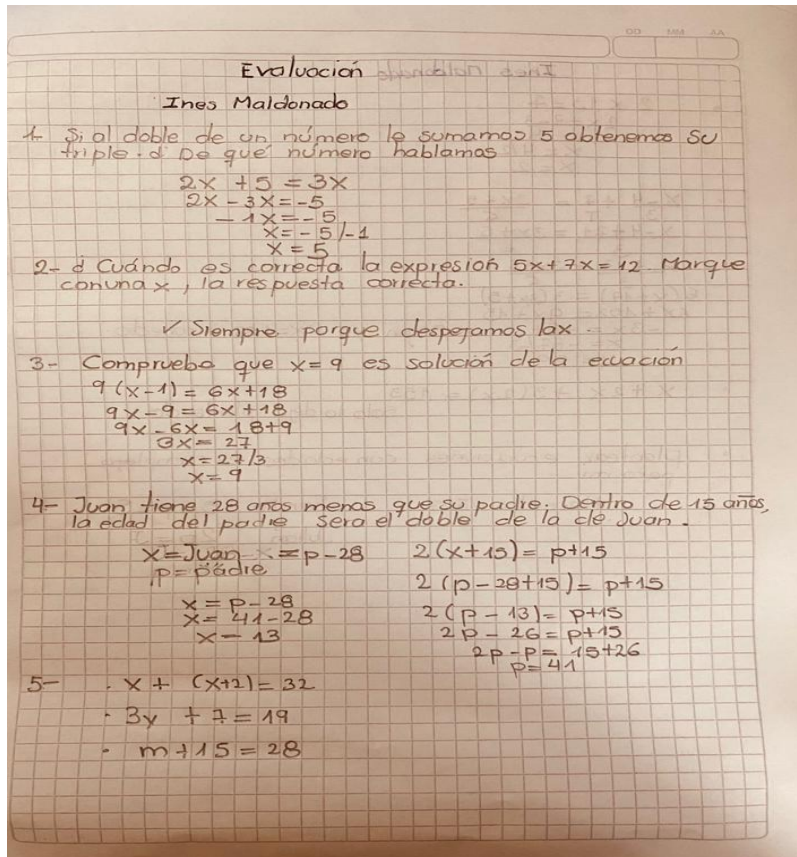 DD MM AA
Evaluación
Ines Maldonado
1- Si al doble de un número le sumamos 5 obtenemos su
triple. ¿ De qué número hablamos
2x + 5 = 3x
2x - 3x = -5
- 1x = - 5
x = - 5 /-1
x = 5
2- ¿ Cuándo es correcta la expresión 5x + 7x = 12. Marque
con una x, la respuesta correcta.
✓ Siempre porque despejamos la x.
3- Comprueba que x = 9 es solución de la ecuación
9 (x - 1) = 6x + 18
9x - 9 = 6x + 18
9x - 6x = 18 + 9
3x = 27
x = 27/3
x = 9
4- Juan tiene 28 años menos que su padre. Dentro de 15 años,
la edad del padre sera el doble de la de Juan.
x = Juan x = p - 28
p = padre
x = p - 28
x = 41 - 28
x = 13
2 (x + 15) = p + 15
2 (p - 28 + 15) = p + 15
2 (p - 13) = p + 15
2p - 26 = p + 15
2p - p = 15 + 26
p = 41
5- · x + (x+2) = 32
· 3y + 7 = 19
· m + 15 = 28